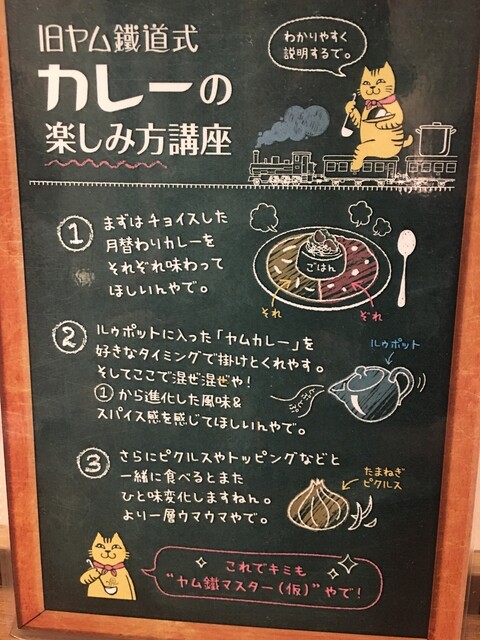 旧ヤム鐵道式
カレーの
楽しみ方講座
わかりやすく
説明するで。
1
まずはチョイスした
月替わりカレーを
それぞれ味わって
ほしいんやで。
ごはん
それ
ぞれ
2
ルゥポットに入った「ヤムカレー」を
好きなタイミングで掛けとくれやす。
そしてここで混ぜ混ぜや!
①から進化した風味&
スパイス感を感じてほしいんやで。
ルゥポット
3
さらにピクルスやトッピングなどと
一緒に食べるとまた
ひと味変化しますねん。
より一層ウマウマやで。
たまねぎ
ピクルス
これでキミも
"ヤム鐵マスター(仮)"やで!